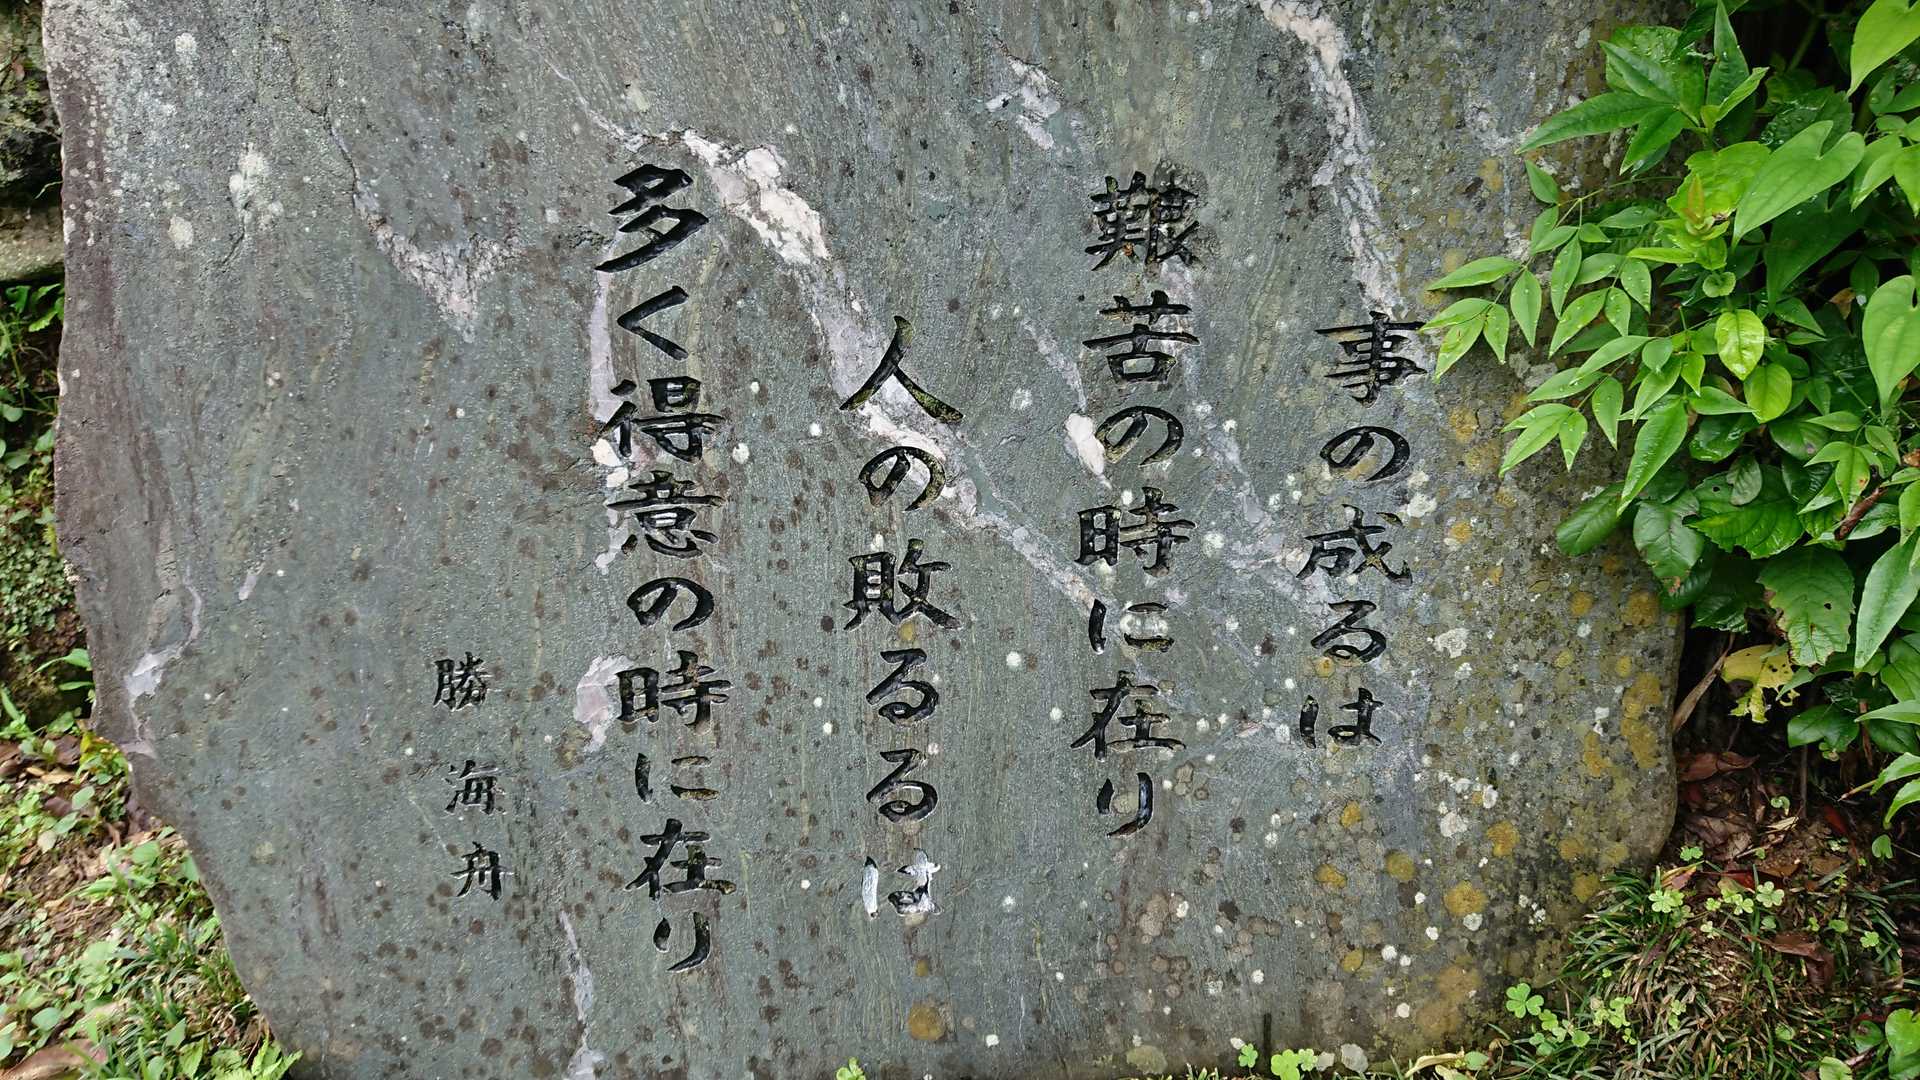 事の成るは
艱苦の時に在り
人の敗るるは
多く得意の時に在り
勝海舟